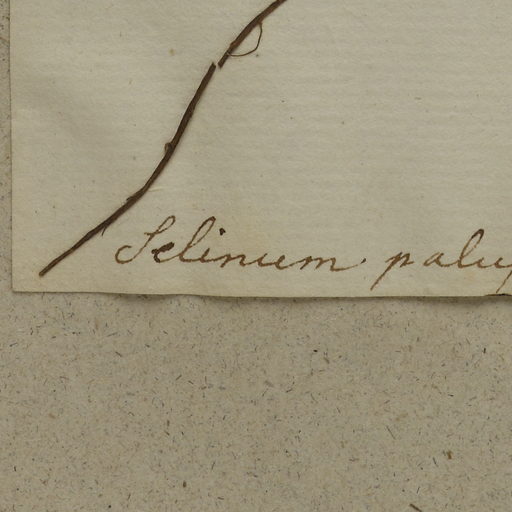 Selinum palu